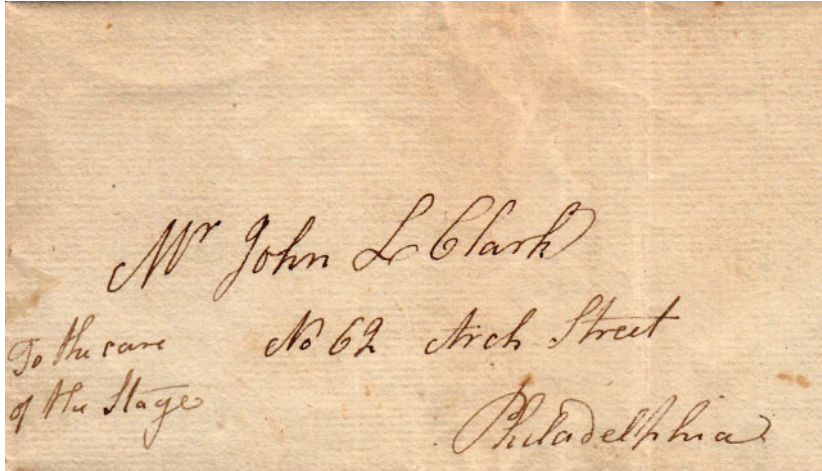 Mr John L Clark
No 62 Arch Street
Philadelphia
To the care
of the Stage